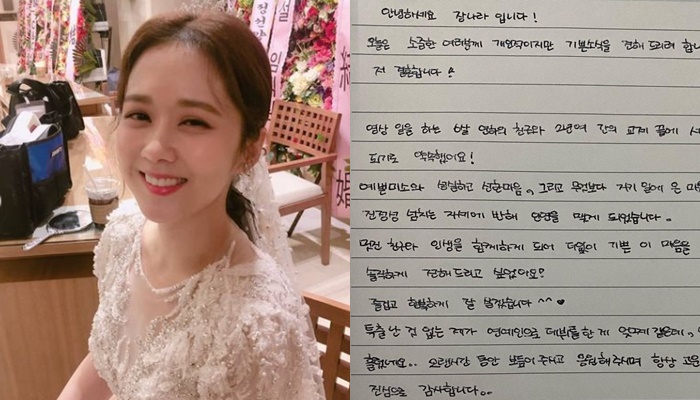 안녕하세요 장나라 입니다!
오늘은 소중한 여러분께 개인적이지만 기쁜소식을 전해 드리려 합니
저 결혼합니다!
영상 일을 하는 6살 연하의 친구와 2년여 간의 교제 끝에 서
되기로 약속했어요!
예쁜미소와 성실하고 선한마음, 그리고 무엇보다 자기 일에 온 마
진정성 넘치는 자세에 반해 인연을 맺게 되었습니다.
멋진 친구와 인생을 함께하게 되어 더없이 기쁜 이 마음을
솔직하게 전해드리고 싶었어요?
즐겁고 행복하게 잘 살겠습니다 ^^ ♥
특출난 것 없는 제가 연예인으로 데뷔를 한 게 엊그제 같은데,
흘렀네요.. 오랜시간 동안 보듬어 주시고 응원해 주시며 항상 고운
진심으로 감사합니다..